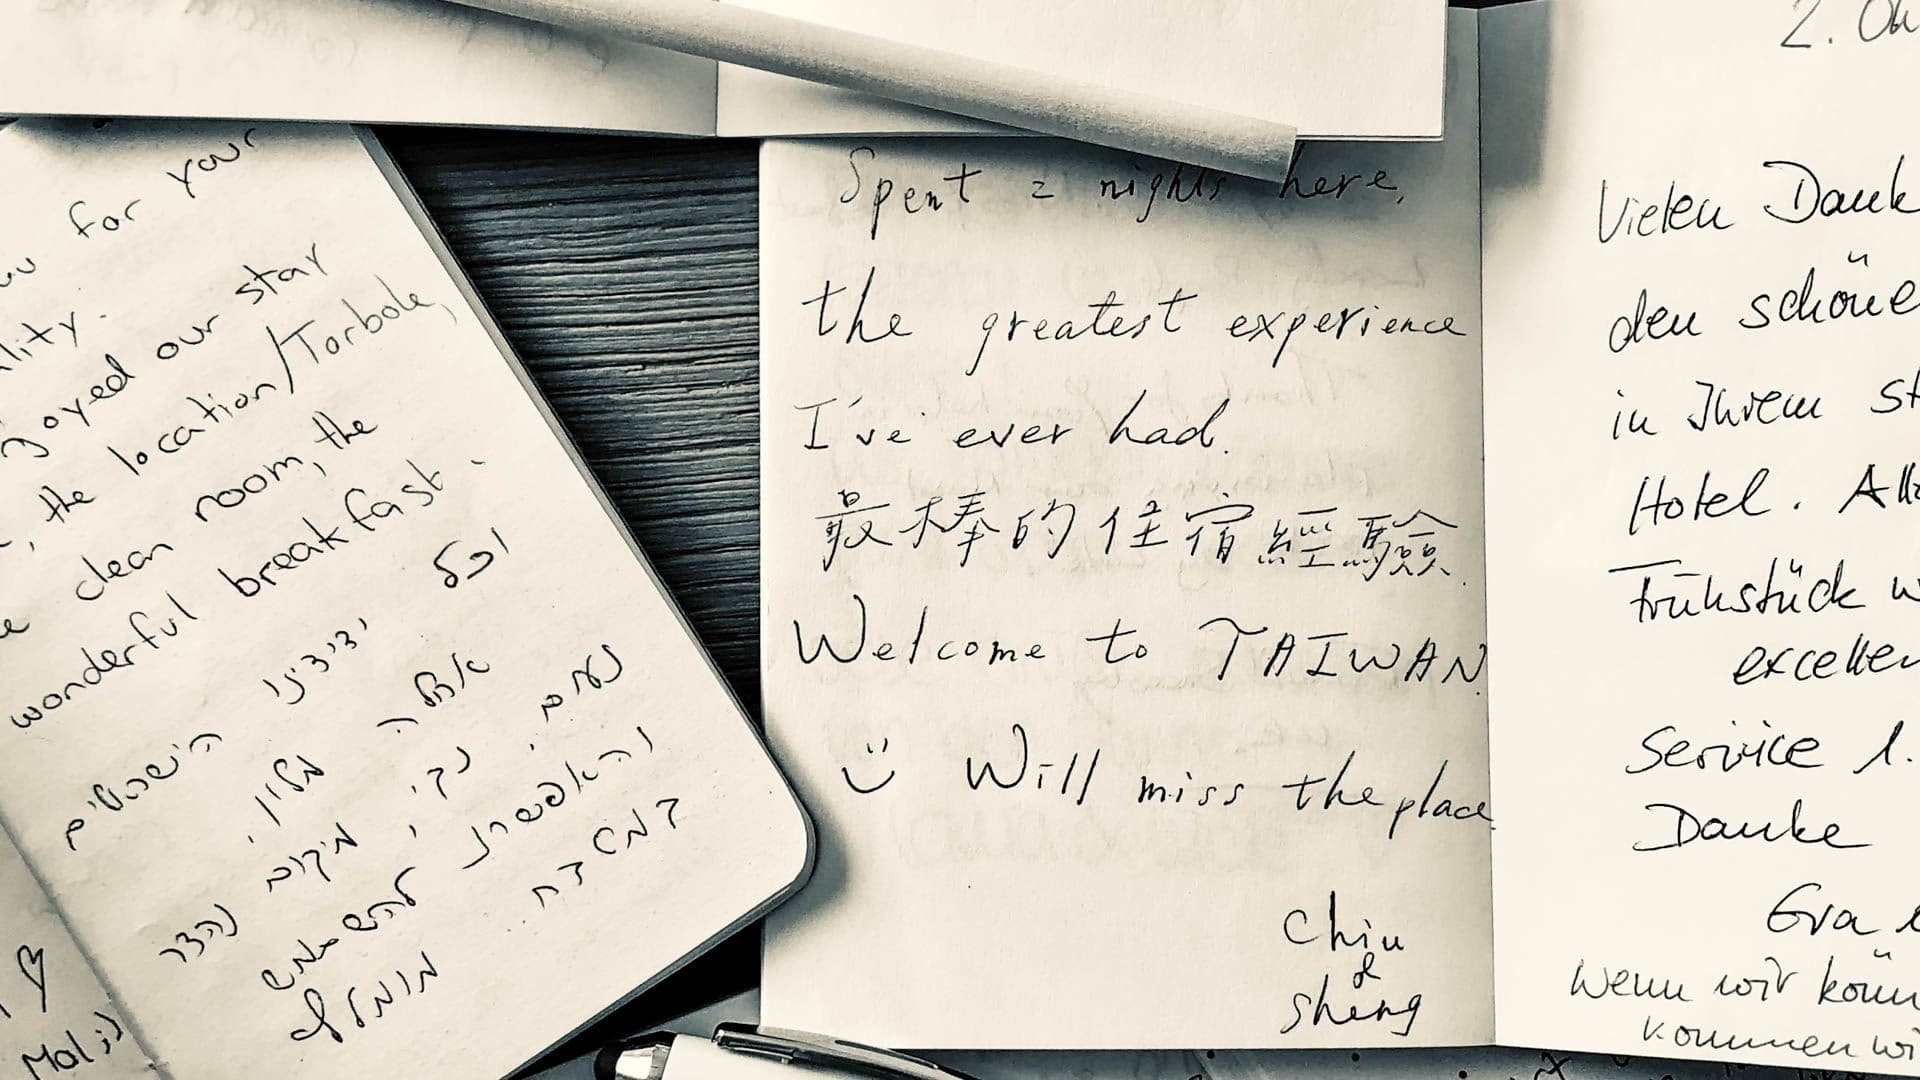 for your
lity.
joyed our stay
, the location/Torbole,
clean room, the
wonderful breakfast.
וכל
ידידינו הישראלים
אחלה מלון.
נעים, נקי, מיקום נהדר
והאפשרות להשתמש
במטבח.
מומלץ
Mal
Spent 2 nights here,
the greatest experience
I've ever had.
最棒的住宿經驗.
Welcome to TAIWAN.
Will miss the place.
Chiu
&
Sheng
2. Ok
Vielen Dank
den schöne
in Ihrem st
Hotel. All
Frühstück w
excellen
Service 1.
Danke
Eva
Wenn wir könn
kommen wi